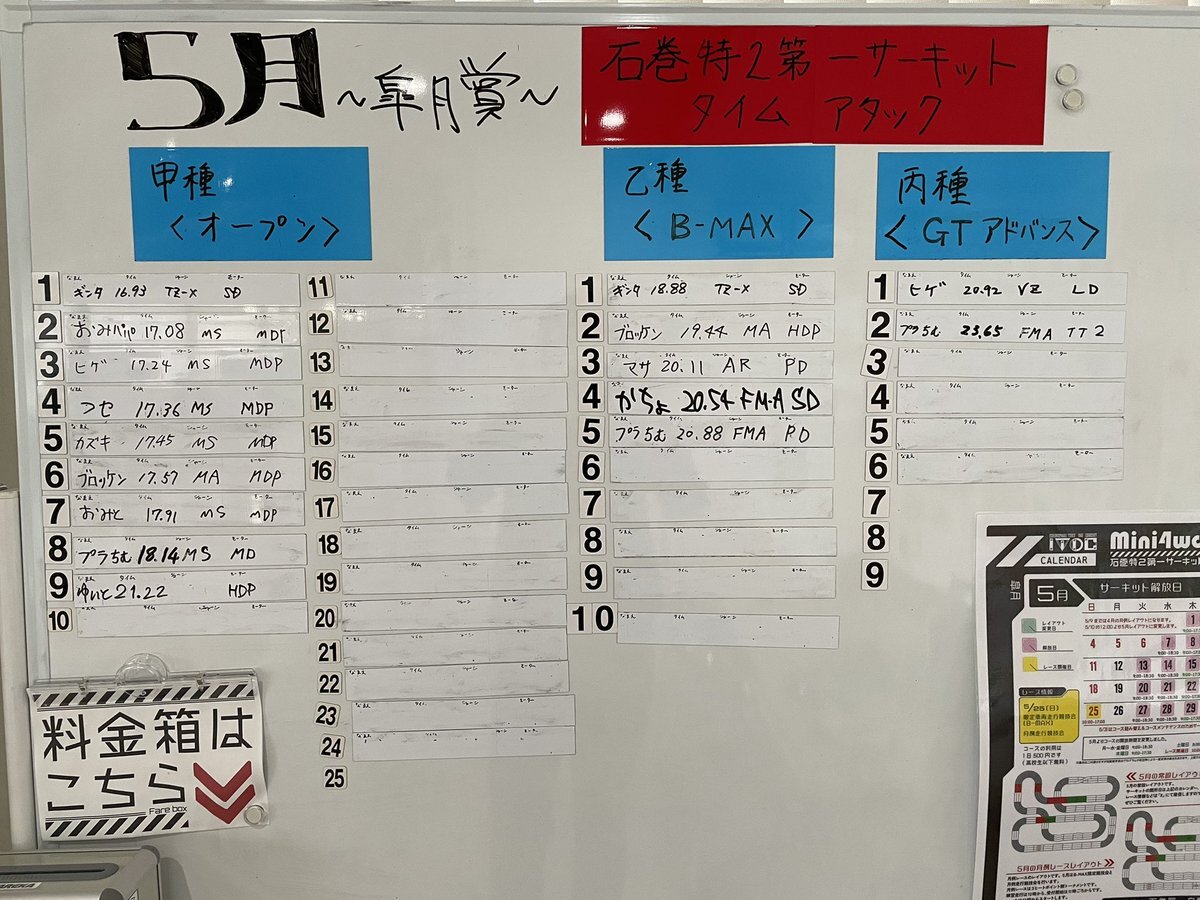 5月
～皐月賞～
石巻特2第一サーキット
タイム アタック
甲種
<オープン>
1 ギンタ 16.93 TZ-X SD
2 おみパパ 17.08 MS MDP
3 ヒゲ 17.24 MS MDP
4 つせ 17.36 MS MDP
5 カズキ 17.45 MS MDP
6 ブロッケン 17.57 MA MDP
7 おみと 17.91 MS MDP
8 プラちむ 18.14 MS MD
9 ゆいと 21.22 HDP
10
11
12
13
14
15
16
17
18
19
20
21
22
23
24
25
乙種
<B-MAX>
1 ギンタ 18.88 TZ-X SD
2 ブロッケン 19.44 MA HDP
3 マサ 20.11 AR PD
4 かちょ 20.54 FM-A SD
5 プラちむ 20.88 FMA PD
6
7
8
9
10
丙種
<GTアドバンス>
1 ヒゲ 20.92 VZ LD
2 プラちむ 23.65 FMA TT2
3
4
5
6
7
8
9
料金箱は
こちら
Fare box
ITDC
CALENDAR
Mini4w
石巻特2第一サーキット
皐月
5月
サーキット解放日
日 月 火 水 木
レイアウト
変更日
解放日
レース開催日
1
4 5 6 7 8
11 12 13 14 15
18 19 20 21 22
25 26 27 28 29
レース情報
5/25(日)
限定車両走行競技会
(B-MAX)
月例走行競技会
コースの利用は
1日500円です
(高校生以下無料)
5月の常設レイアウ
5月の月例レースレイアウト